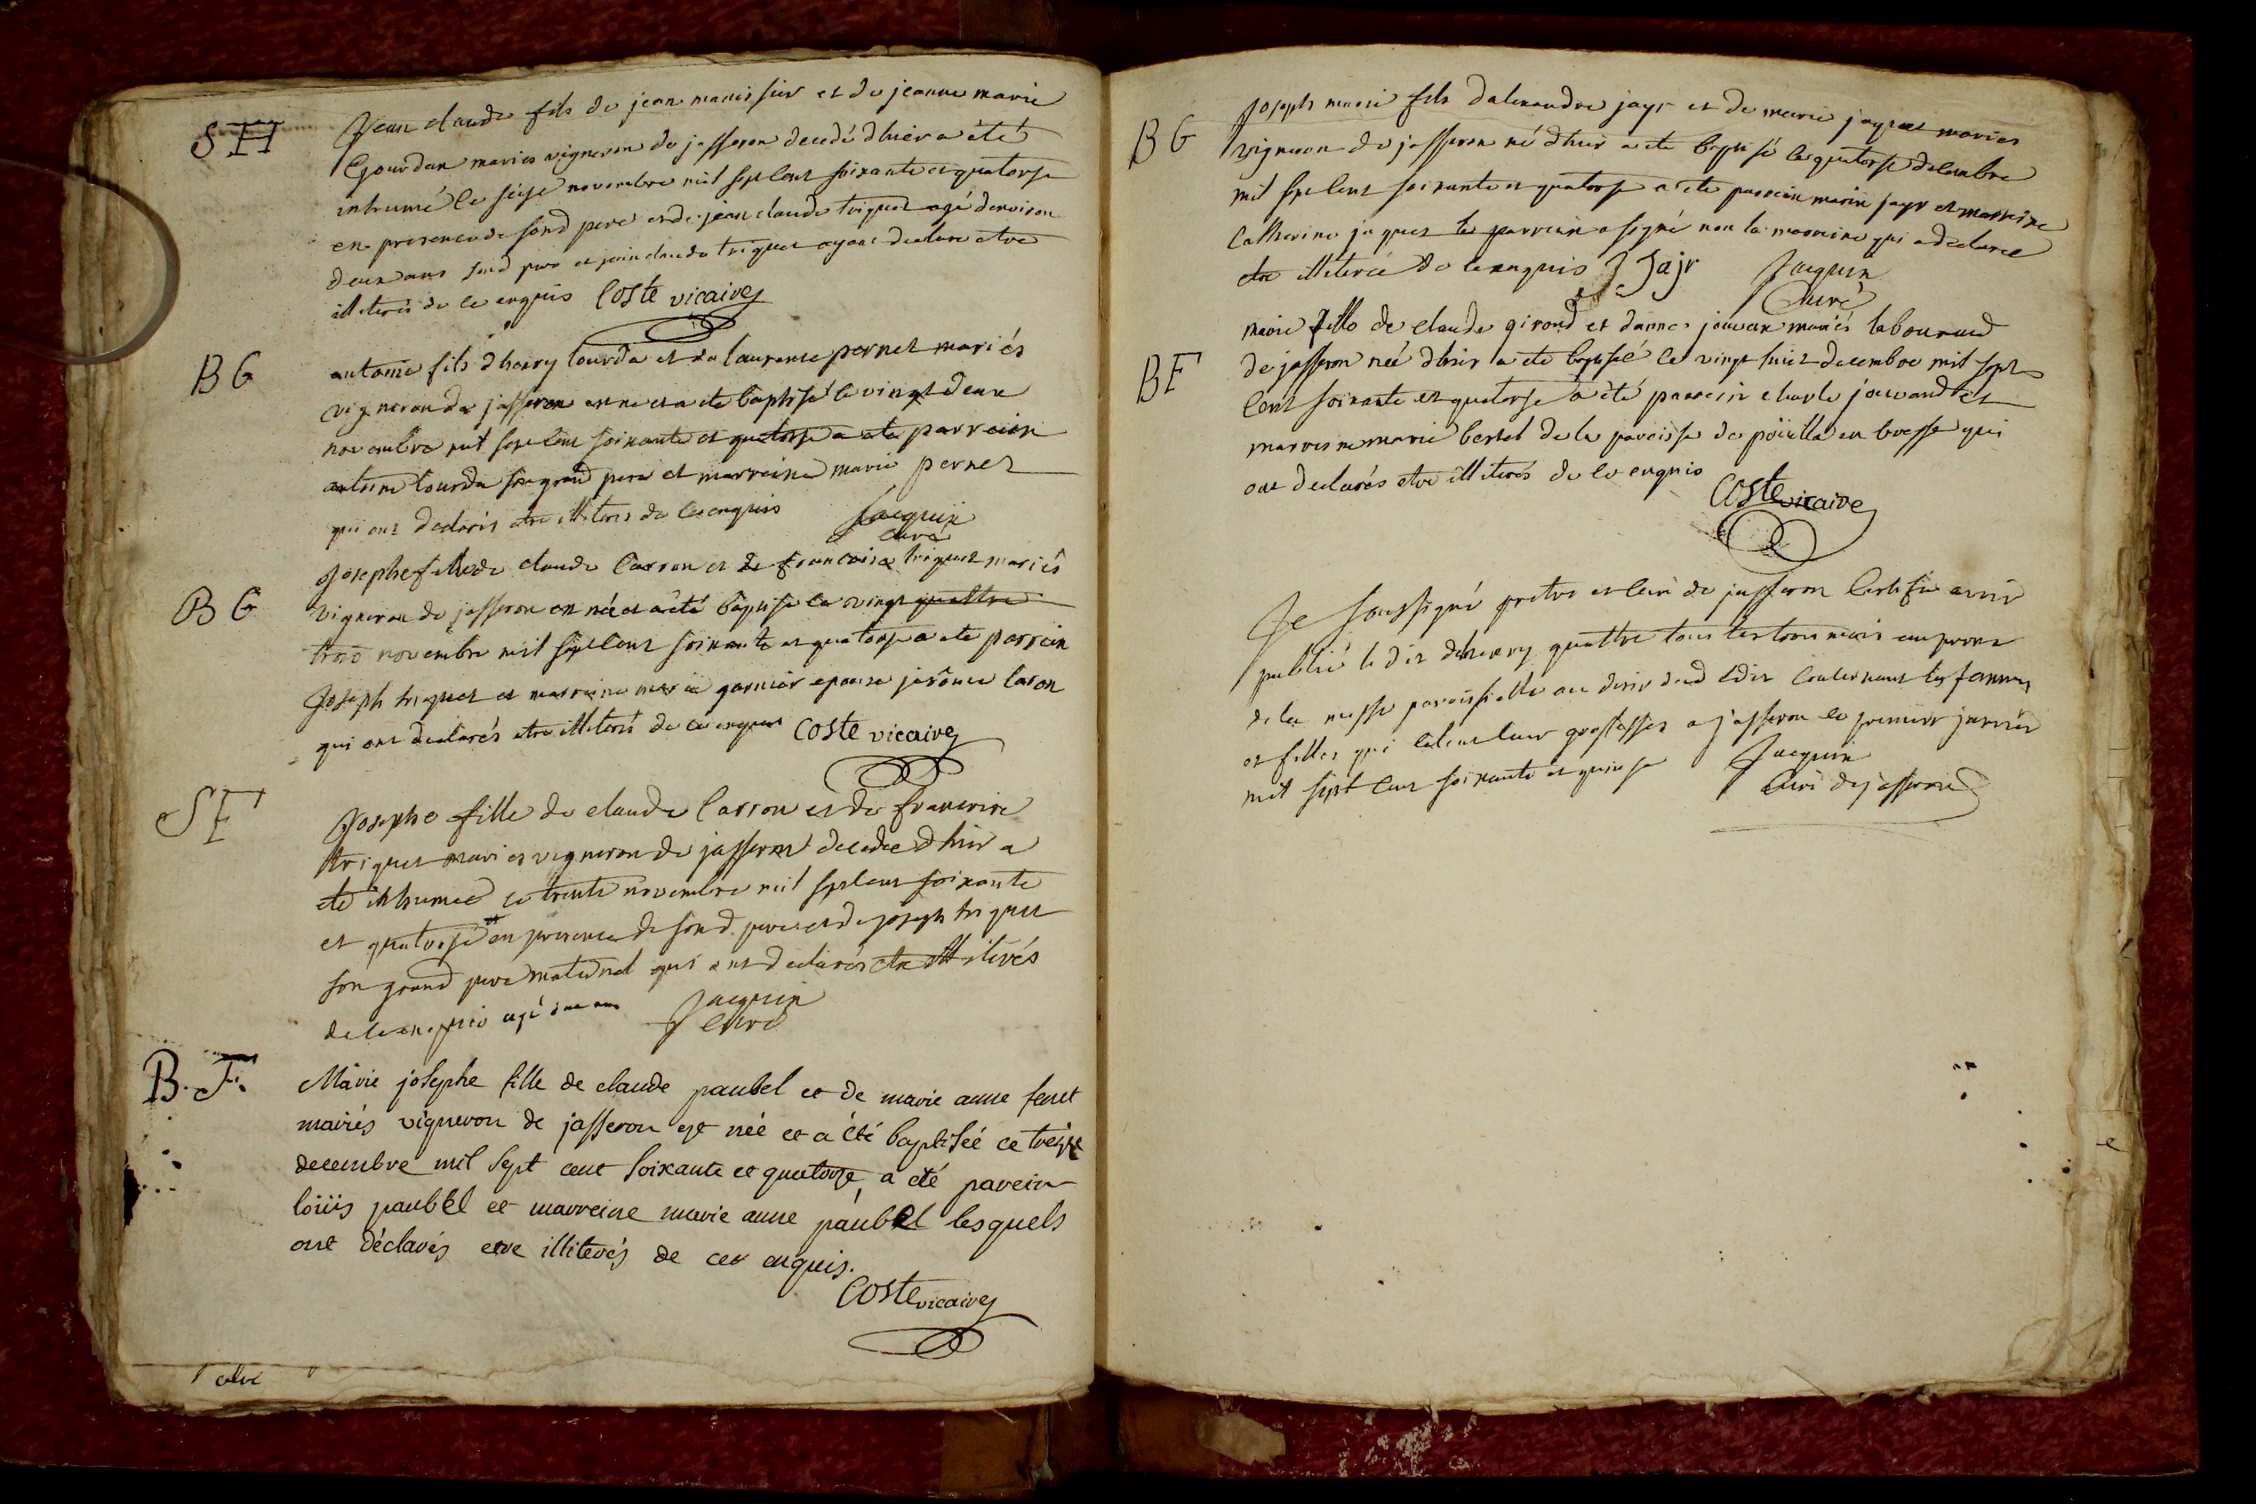 SH
Jean claude fils de jean manissier et de jeanne marie
Gourdan mariés vigneron de jasseron decedé d'hier a été
inhumé le seise novembre mil sept cent soixante et quatorse
en presence de sond pere et de jean claude triquet agé d'environ
deux ans sond pere et jean claude triquet ayant declare etre
illiterés de ce enquis Coste vicaire
BG
antoine fils d'henry tourda et de laurence pernet mariés
vigneron de jasseron est né et a ete baptisé le vingt deux
novembre mil sept cent soixante et quatorse a ete parrein
antoine tourda son grand pere et marreine marie pernet
qui ont declarés etre illiterés de ce enquis Jacquin
curé
BG
Josephe fille de claude Carron et de francoise triquet mariés
vigneron de jasseron est née et a été baptisé le vingt quattre
trois novembre mil sept cent soixante et quatorse a ete parrein
Joseph triquet et marreine marie garnier epouse jerôme Caron
qui ont declarés etre illiterés de ce enquis Coste vicaire
SF
Josephe fille de claude Carron et de francoise
triquet mariés vigneron de jasseron decedee d'hier a
eté inhumée ce trente novembre mil sept cent soixante
et quatorse en presence de sond pere et de joseph triquet
son grand pere maternel qui ont declarés etre illiterés
de ce enquis agé
Jacquin
curé
B.F.
Marie josephe fille de claude paubel et de marie anne feret
mariés vigneron de jasseron est née et a été baptisée ce treize
decembre mil sept cent soixante et quatorze, a été parein
loüis paubel et marreine marie anne paubel lesquels
ont déclarés etre illiterés de ces enquis.
Coste vicaire
BG
Joseph marie fils d'alexandre jayr et de marie jayret mariés
vigneron de jasseron né d'hier a ete baptisé le quatorse decembre
mil sept cent soixante et quatorse a ete parrein marin jayr et marreine
Catherine jaquet le parrein a signé non la marreine qui a declaree
etre illiterée de ce enquis J Jajr Jacquin
Curé
BF
marie fille de claude girond et d'anne jouvan mariés laboureur
de jasseron née d'hier a ete baptisé le vingt huict decembre mil sept
cent soixante et quatorse a été parrein charle jouvand et
marreine marie bertet de la paroisse de poüilla en bresse qui
ont declarés etre illiterés de ce enquis
Coste vicaire
Je soussigné pretre et curé de jasseron Certifie avoir
publié l'edit d'henry quattre tous les trois mois au prone
de la messe paroissialle au desir dud edit Concernant les femmes
et filles qui celent leur grossesses a jasseron le premier janvier
mil sept cent soixante et quinse Jacquin
curé de jasseron